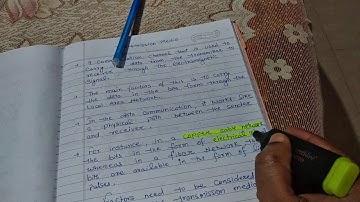 Transmission Media
A communication channel that is used to
carry the data from the transmitter to
receiver through the electromagnetic
signals.
The main function of this is to carry
the data in the bits form through the
Local Area Network.
In the data communication, it works like
a physical path between the sender
and receiver.
For instance, in a copper cable network
the bits in the form of electrical
whereas in a fiber network the
bits are available in the form of
pulses.
factors need to be considered
transmission media